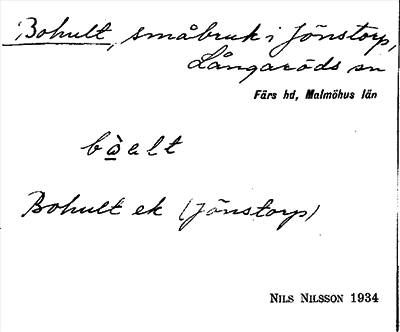 Bohult, småbruk i Jönstorp,
Långaröds sn
Färs hd, Malmöhus län
bὰalt
Bohult ek (Jönstorp)
NILS NILSSON 1934